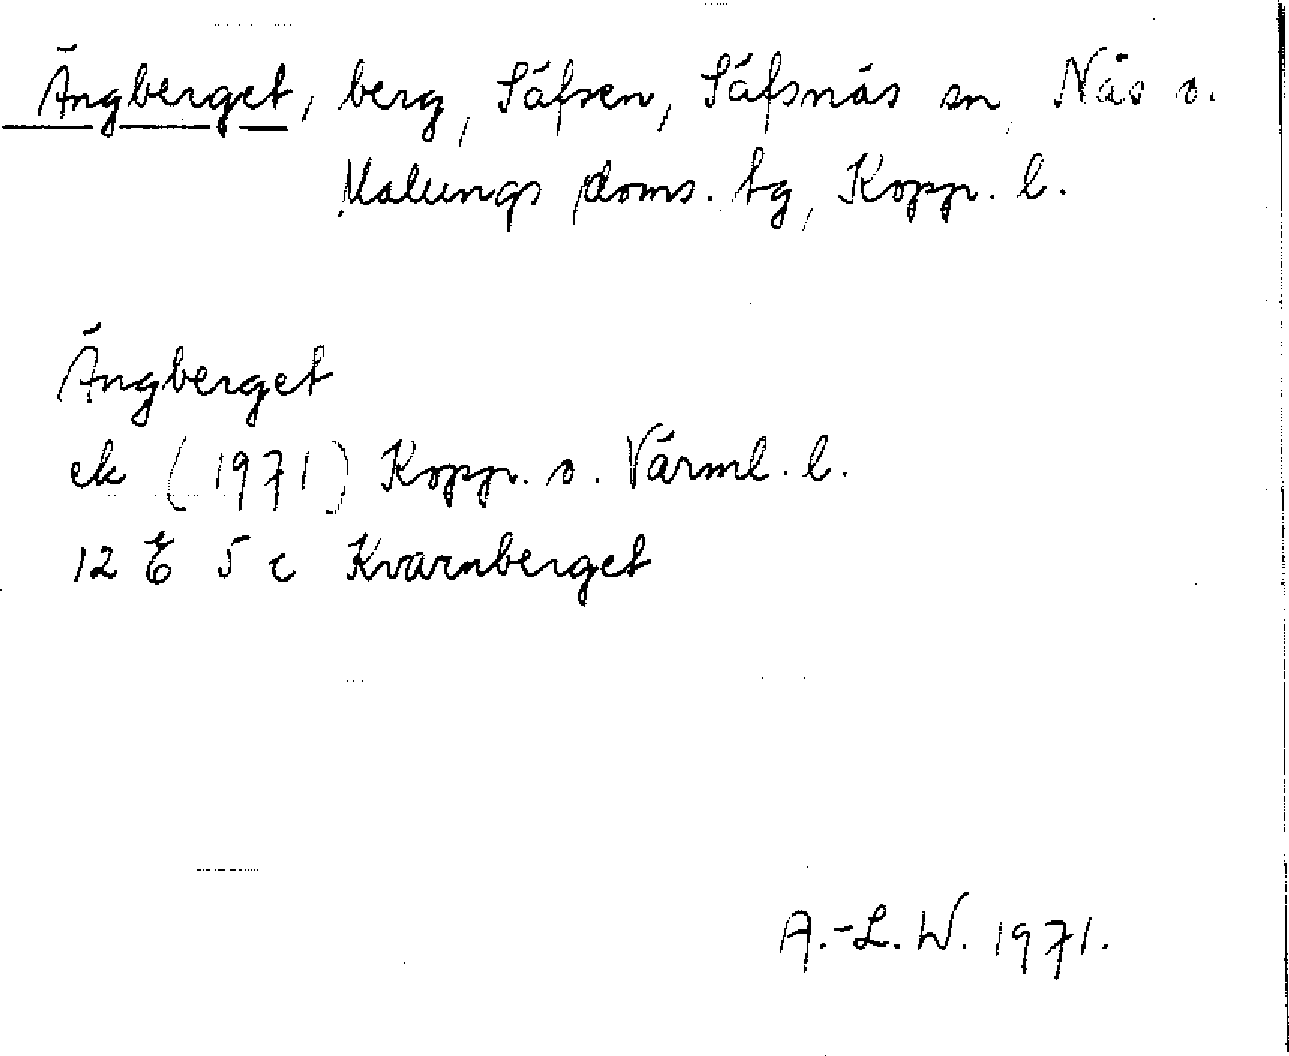 Ängberget, berg, Säfsen, Säfsnäs sn, Näs o.
Malungs doms. tg, Kopp. l.
Ängberget
ek (1971) Kopp. o. Värml. l.
12 E 5 c Kvarnberget
A.-L. W. 1971.